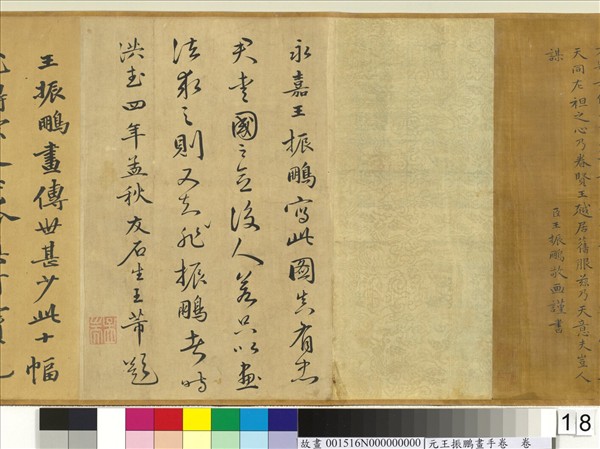 天間左袒之心乃眷賢王越居舊服兹乃天意夫豈人
謀
臣王振鵬敬画謹書
永嘉王振鵬寫此圖真有忠
君愛國之意後人若只以畫
法求之則又知非振鵬者時
洪武四年孟秋友石生王芾題
王振鵬畫傳世甚少此十幅
18
故畫 001516N000000000 元王振鵬畫手卷 卷